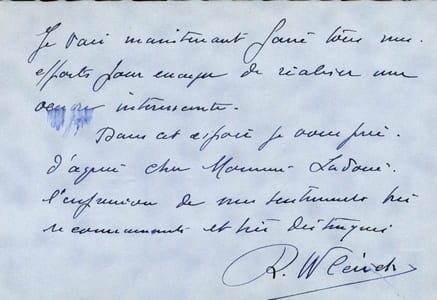 Je vais maintenant faire tous mes
efforts pour essayer de réaliser une
oeuvre intéressante.
Dans cet espoir je vous prie
d'agréer cher Monsieur
l'expression de mes sentiments très
reconnaissants et très distingués
R.